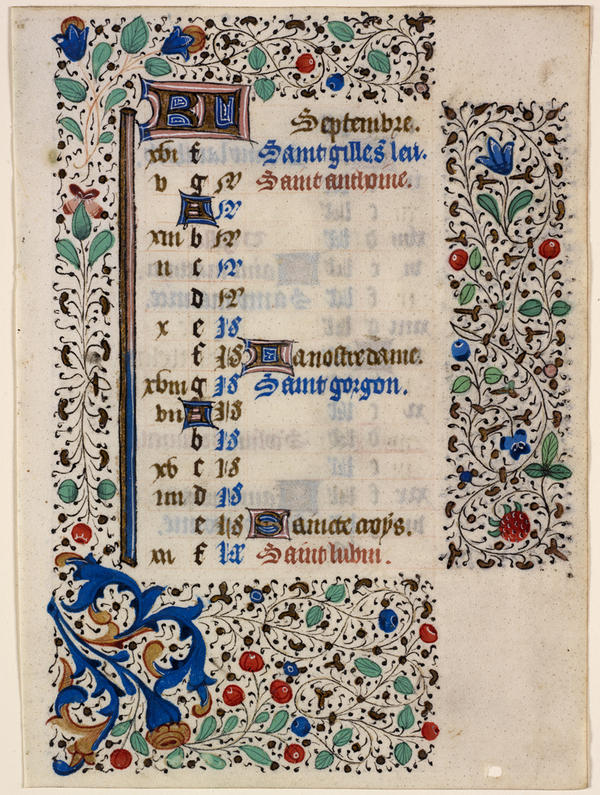 KL Septembre.
xvi f Saint gilles leu.
v g N Saint anthoine.
A N
xiii b N
ii c N
d N
x e Id
f Id La nostre dame.
xviii g Id Saint gorgon.
vii A Id
b Id
xv c Id
iiii d Id
e Id Sancte croys.
xii f kl Saint lubin.